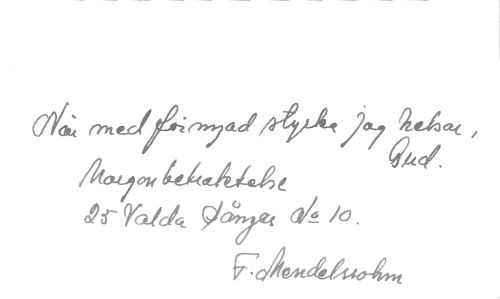 När med förnyad styrka jag helsar,
Gud.
Morgonbetraktelse
25 Valda Sånger No 10.
F. Mendelssohn